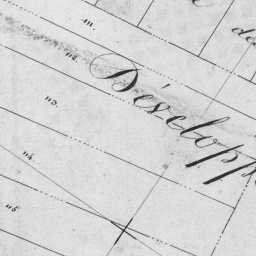 111.
112.
de
Développ
113.
114
115